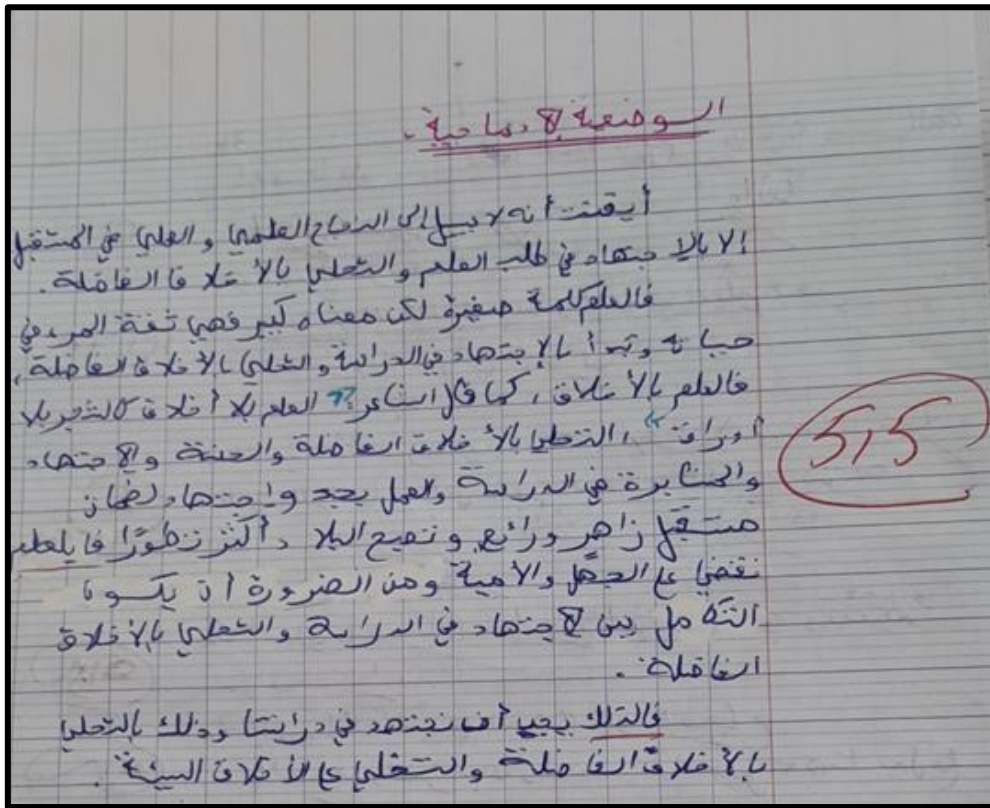 الوضعية الإدماجية.
أيقنت أنه لا سبيل إلى النجاح العلمي والعملي في المستقبل
إلا بالاجتهاد في طلب العلم والتحلي بالأخلاق الفاضلة.
فالعلم كلمة صغيرة لكن معناه كبير فهي ثقة المرء في
حياته وتبدأ بالإجتهاد في الدراسة والتحلي بالأخلاق الفاضلة،
فالعلم بالأخلاق، كما قال الشاعر "العلم بلا أخلاق كالشجر بلا
أوراق"، التحلي بالأخلاق الفاضلة والحسنة والاجتهاد
والمثابرة في الدراسة والعمل بجد واجتهاد لضمان
مستقبل زاهر ورائع، وتصبح البلاد أكثر تطورًا فا بالعلم
نقضي على الجهل والأمية ومن الضرورة أن يكون
التكامل بين الاجتهاد في الدراسة والتحلي بالأخلاق
الفاضلة.
فالذلك يجب أن نجتهد في دراستنا وذلك بالتحلي
بالأخلاق الفاضلة والتخلي عن الأخلاق السيئة.
5,5